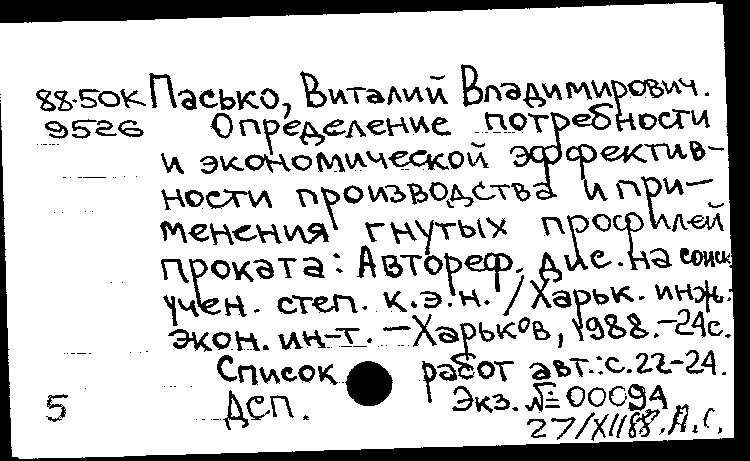 88-50К Пасько, Виталий Владимирович.
9526 Определение потребности
и экономической эффектив-
ности производства и при-
менения гнутых профилей
проката: Автореф. дис. на соиск.
учен. степ. к.э.н. / Харьк. инж.-
экон. ин-т. - Харьков, 1988. - 24с.
Список работ авт.: с. 22-24.
5 ДСП. Экз. № 00094
27/XII88. А.С.